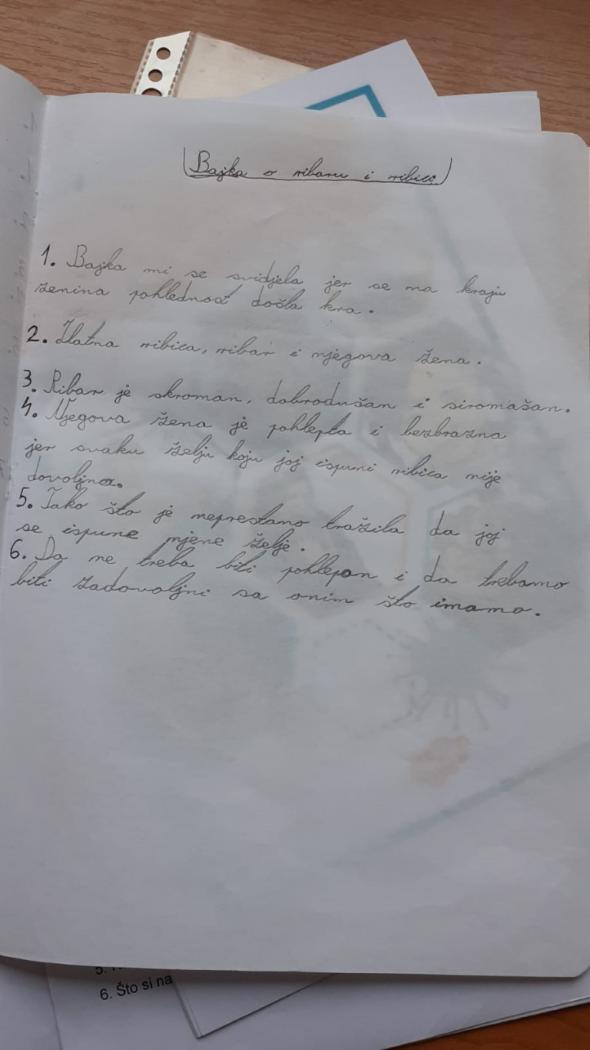 Bajka o ribaru i ribici
1. Bajka mi se svidjela jer se na kraju
ženina pohlednost došla kra.
2. Zlatna ribica, ribar i njegova žena.
3. Ribar je skroman, dobrodušan i siromašan.
4. Njegova žena je pohlepta i bezbrazna
jer svaku želju koju joj ispuni ribica nije
dovoljna.
5. Tako što je neprestano tražila da joj
se ispune njene želje.
6. Da ne treba biti pohlepan i da trebamo
biti zadovoljni sa onim što imamo.
5.
6. Što si na